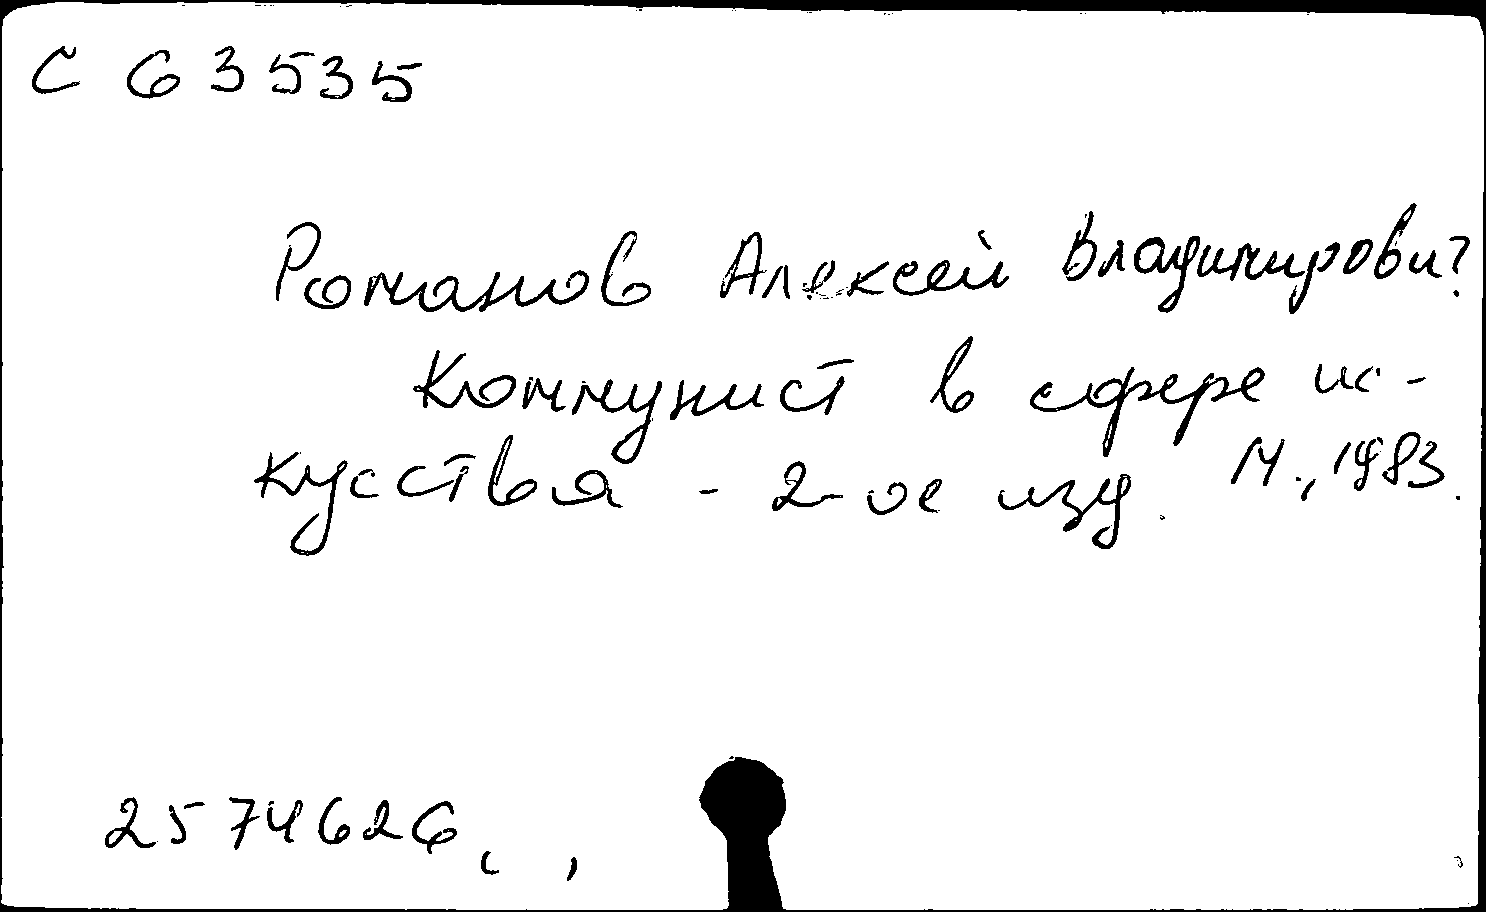 С 63535
Романов Алексей Владимирович
Коммунист в сфере ис-
кусства - 2-ое изд. М., 1983.
2574626